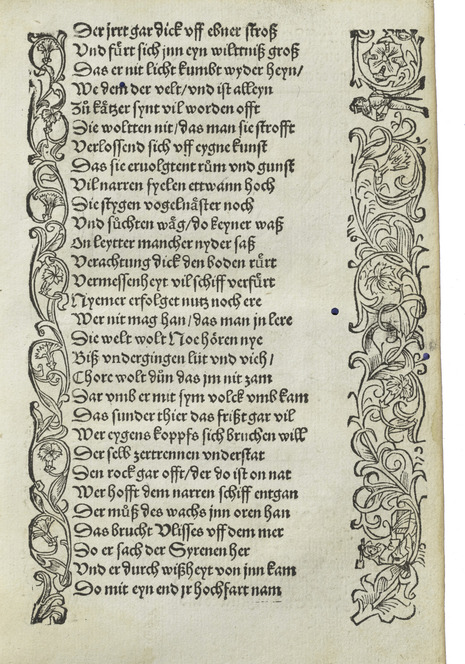 Der jrrt gar dick vff ebner stroß
Vnd fürt sich jnn eyn wilttniß groß
Das er nit licht kumbt wyder heyn/
We dem der velt/vnd ist alleyn
Zů kätzer synt vil worden offt
Die woltten nit/das man sie strofft
Verlossend sich vff eygne kunst
Das sie eruolgtent rům vnd gunst
Vil narren fyelen ettwann hoch
Die stygen vogelnäster noch
Vnd sůchten wäg/do keyner waß
On leytter mancher nyder saß
Verachtung dick den boden rürt
Vermessenheyt vil schiff verfürt
Nyemer erfolget nutz noch ere
Wer nit mag han/das man jn lere
Die welt wolt Noe hören nye
Biß vndergingen lüt vnd vich/
Chore wolt důn das jm nit zam
Dar vmb er mit sym volck vmb kam
Das sunder thier das frißt gar vil
Wer eygens koppfs sich bruchen will
Der selb zertrennen vnderstat
Den rock gar offt/der do ist on nat
Wer hofft dem narren schiff entgan
Der můß des wachs jnn oren han
Das brucht Vlisses vff dem mer
Do er sach der Syrenen her
Vnd er durch wißheyt von jnn kam
Do mit eyn end jr hochfart nam